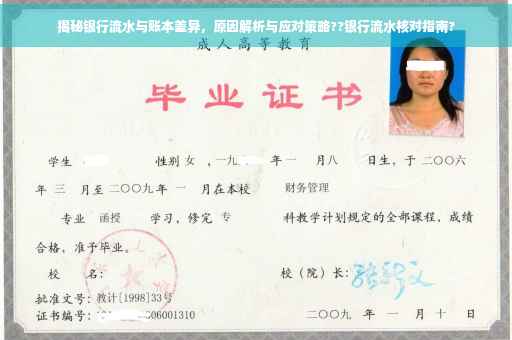 揭秘银行流水与账本差异，原因解析与应对策略??银行流水核对指南?
成人高等教育
毕业证书
学生 性别 女 ，一九 年 一 月八 日生，于 二〇〇六
年 三 月至 二〇〇九 年 一 月在本校 财务管理
专业 函授 学习，修完 专 科教学计划规定的全部课程，成绩
合格，准予毕业。
校 名： 校（院）长：
批准文号：教计[1998]33号
证书编号： 06001310 二〇〇九 年 一 月 十 日